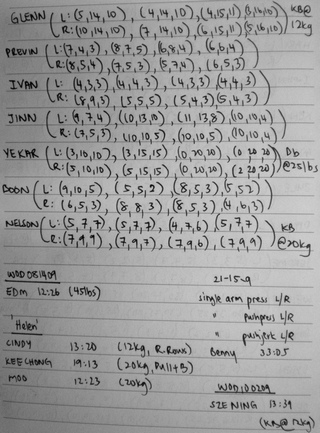 GLENN (L: (5,14,10), (4,14,10), (4,15,11) (3,16,10) ) KB@
R: (10,14,10), (7,14,10) (6,15,11) (5,16,10) 12kg
PREVIN (L: (7,4,3) (8,7,5) (6,8,4) (6,6,4)
R: (8,5,4) (7,5,3) (5,7,4) (6,5,3)
IVAN (L: (4,3,3) (4,4,3) (4,3,3) (4,4,3)
R: (8,9,3) (5,5,5) (5,4,3) (5,4,3)
JINN (L: (9,7,4) (10,13,10) (11,13,8) (10,10,4)
R: (7,5,3) (10,10,5) (10,10,5) (10,10,4)
YEKAR (L: (3,10,10), (3,15,15) (0,20,20) (0,20,20) ) Db
R: (5,10,10), (5,15,15) (0,20,20) (2,20,20) @25lbs
BOON (L: (9,10,5) (5,5,2) (8,5,3) (5,5,2)
R: (6,5,3) (8,8,3) (8,5,3) (4,6,3)
NELSON (L: (5,7,7) (5,7,7) (4,7,6) (5,7,7) ) KB
R: (7,9,9) (7,9,7) (7,9,6) (7,9,9) @20kg
WOD 081409
EDM 12:26 (45lbs)
'Helen'
CINDY 13:20 (12kg, R.Row)
KEECHONG 19:13 (20kg, Pull+B)
MOO 12:23 (20kg)
21-15-9
single arm press L/R
" pushpress L/R
" pushjerk L/R
Benny 33:05
WOD 100209
SZE NING 13:39
(KB@12kg)